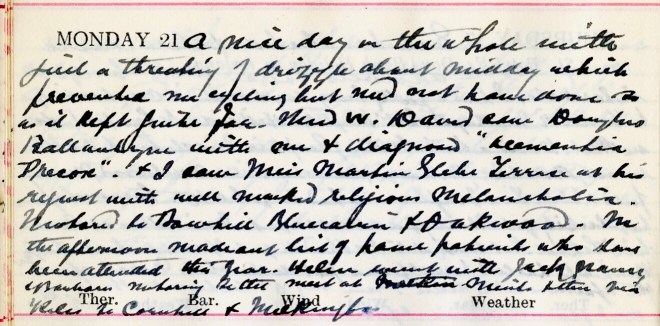 MONDAY 21 A nice day on the whole with
just a threating of drizzle about midday which
prevented me cycling but need not have done so
as it kept quite fair. Med W. David saw Douglas
Ballantyne with me & diagnosed "Dementia
Precox". & I saw Miss Martin Glebe Terrace at his
request with well marked religious Melancholia.
Motored to Bowhill & Oakwood. In
the afternoon made out list of panel patients who have
been attended this year. Helen went with Jack
& Barbara motoring to the meet at via
Kelso to Cornhill &
Ther. Bar. Wind Weather